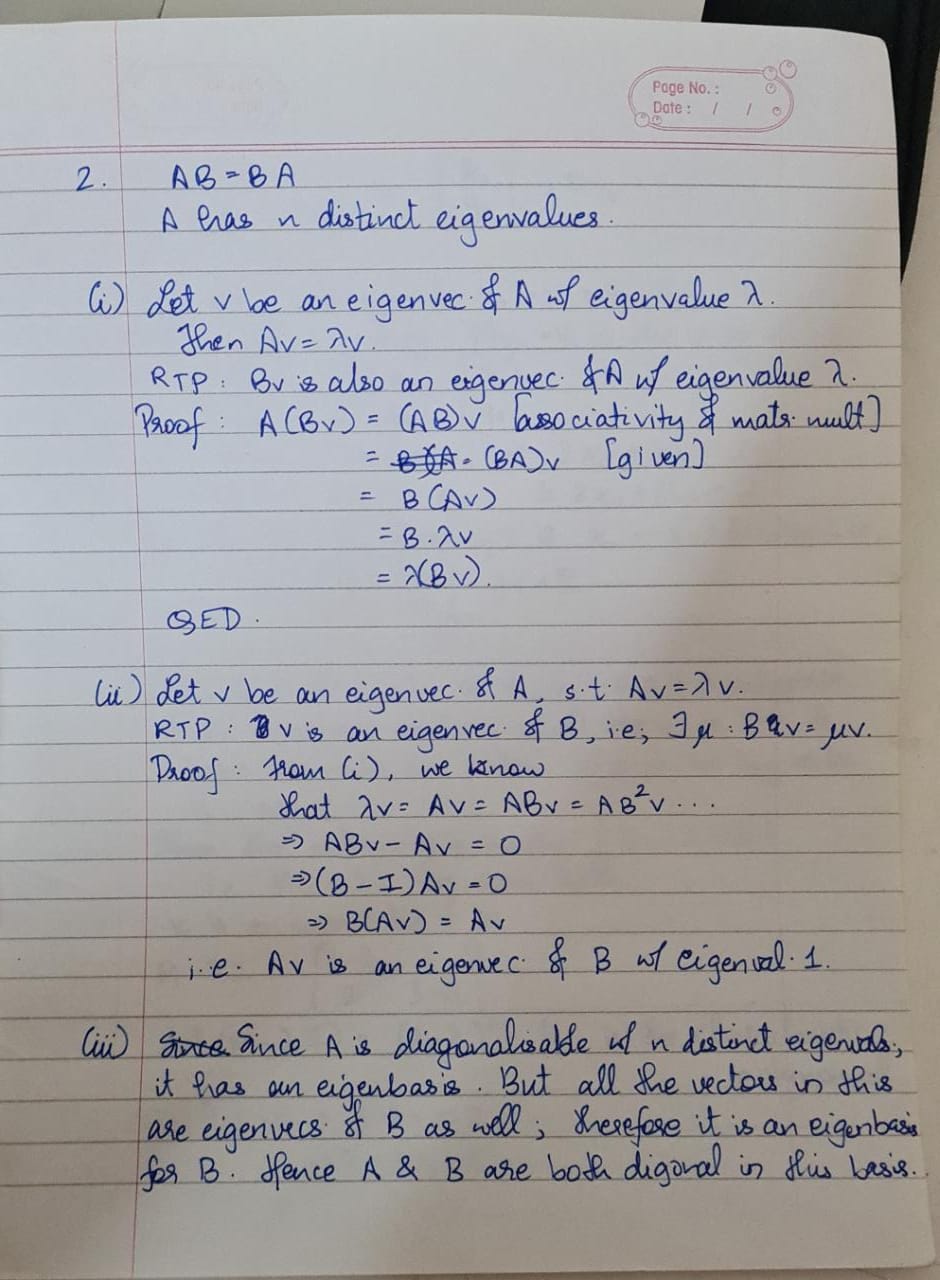 Page No. :
Date : / /
2. AB = BA
A has n distinct eigenvalues.
(i) Let v be an eigenvec. of A w/ eigenvalue λ.
Then Av = λv.
RTP : Bv is also an eigenvec. of A w/ eigenvalue λ.
Proof : A(Bv) = (AB)v [associativity of matr. mult]
= (BA)v [given]
= B(Av)
= B.λv
= λ(Bv).
QED.
(ii) Let v be an eigenvec. of A, s.t. Av = λv.
RTP : v is an eigenvec. of B, i.e; ∃ μ : Bv = μv.
Proof : From (i), we know
that λv = Av = ABv = AB²v ...
⇒ ABv - Av = 0
⇒ (B - I) Av = 0
⇒ B(Av) = Av
i.e. Av is an eigenvec. of B w/ eigenval. 1.
(iii) Since Since A is diagonalisable w/ n distinct eigenvals.,
it has an eigenbasis. But all the vectors in this
are eigenvecs. of B as well ; therefore it is an eigenbasis
for B. Hence A & B are both digonal in this basis.